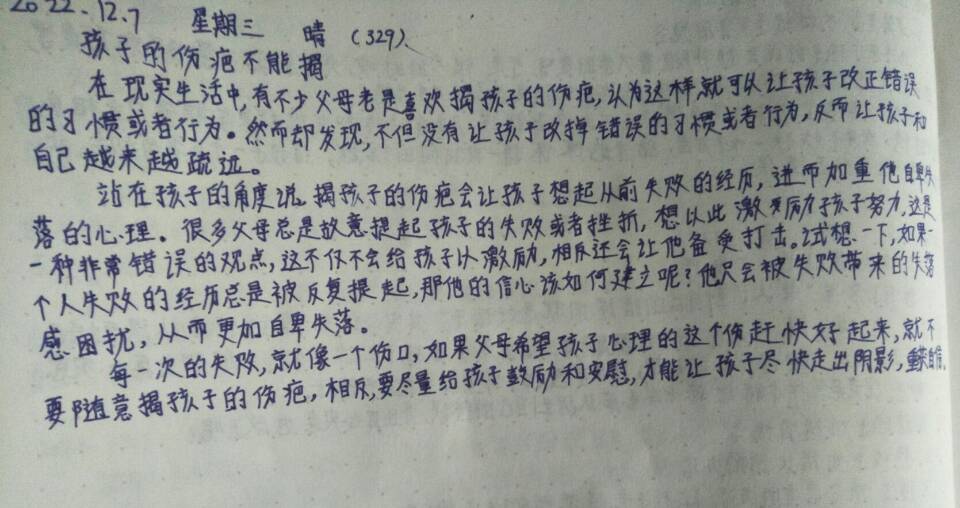 2022.12.7 星期三 晴 (329)、
孩子的伤疤不能揭
在现实生活中,有不少父母老是喜欢揭孩子的伤疤,认为这样就可以让孩子改正错误
的习惯或者行为。然而却发现,不但没有让孩子改掉错误的习惯或者行为,反而让孩子和
自己越来越疏远。
站在孩子的角度说,揭孩子的伤疤会让孩子想起从前失败的经历,进而加重他自卑失
落的心理。很多父母总是故意提起孩子的失败或者挫折,想以此激励孩子努力,这是
一种非常错误的观点,这不仅不会给孩子以激励,相反还会让他备受打击。试想一下,如果一
个人失败的经历总是被反复提起,那他的信心该如何建立呢?他只会被失败带来的失落
感困扰,从而更加自卑失落。
每一次的失败,就像一个伤口,如果父母希望孩子心理的这个伤赶快好起来,就不
要随意揭孩子的伤疤,相反,要尽量给孩子鼓励和安慰,才能让孩子尽快走出阴影,重获自信。